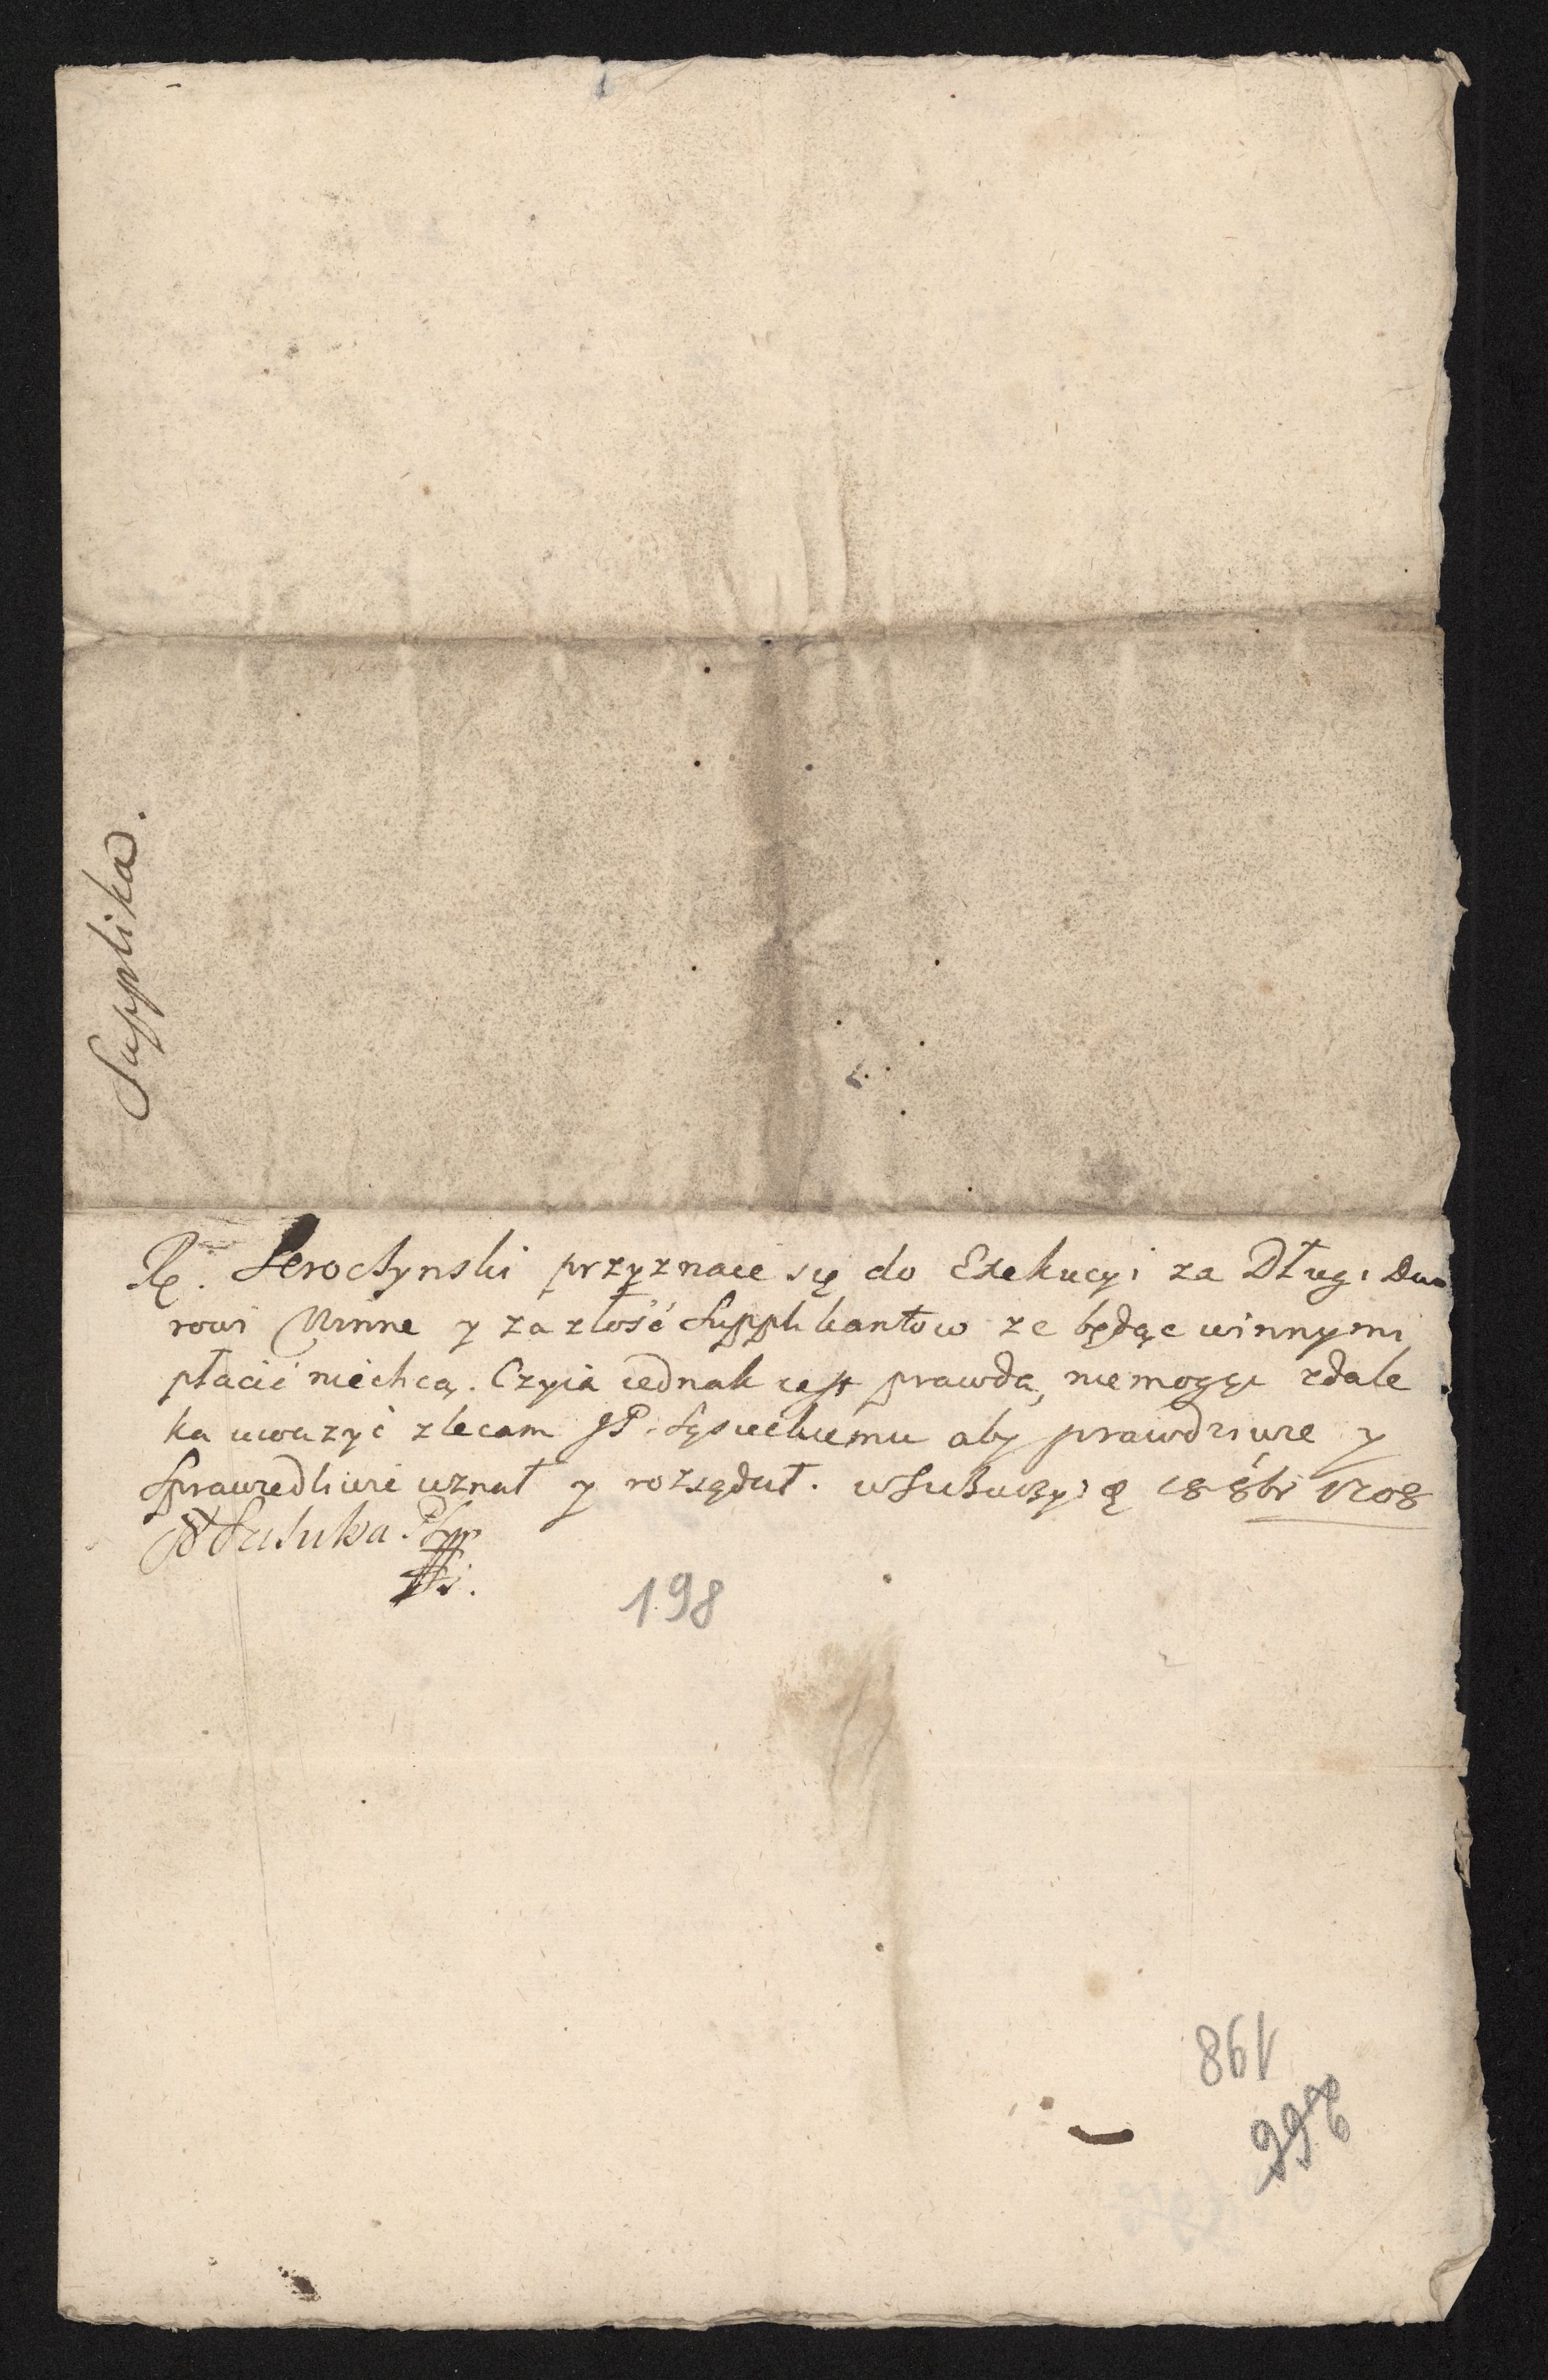 Supplika.
Seroczynski przyznaie się do Exekucyi za Długi Dwo
rowi Winne y za złość Supplikantow ze będąc winnymi
płacić niechcą. Czyia iednak iest prawda, niemogąc zdale
ka uwazyć zlecam JP. aby prawdziwie y
sprawiedliwie uznał y rozsądził. 18 8br
198
198
266